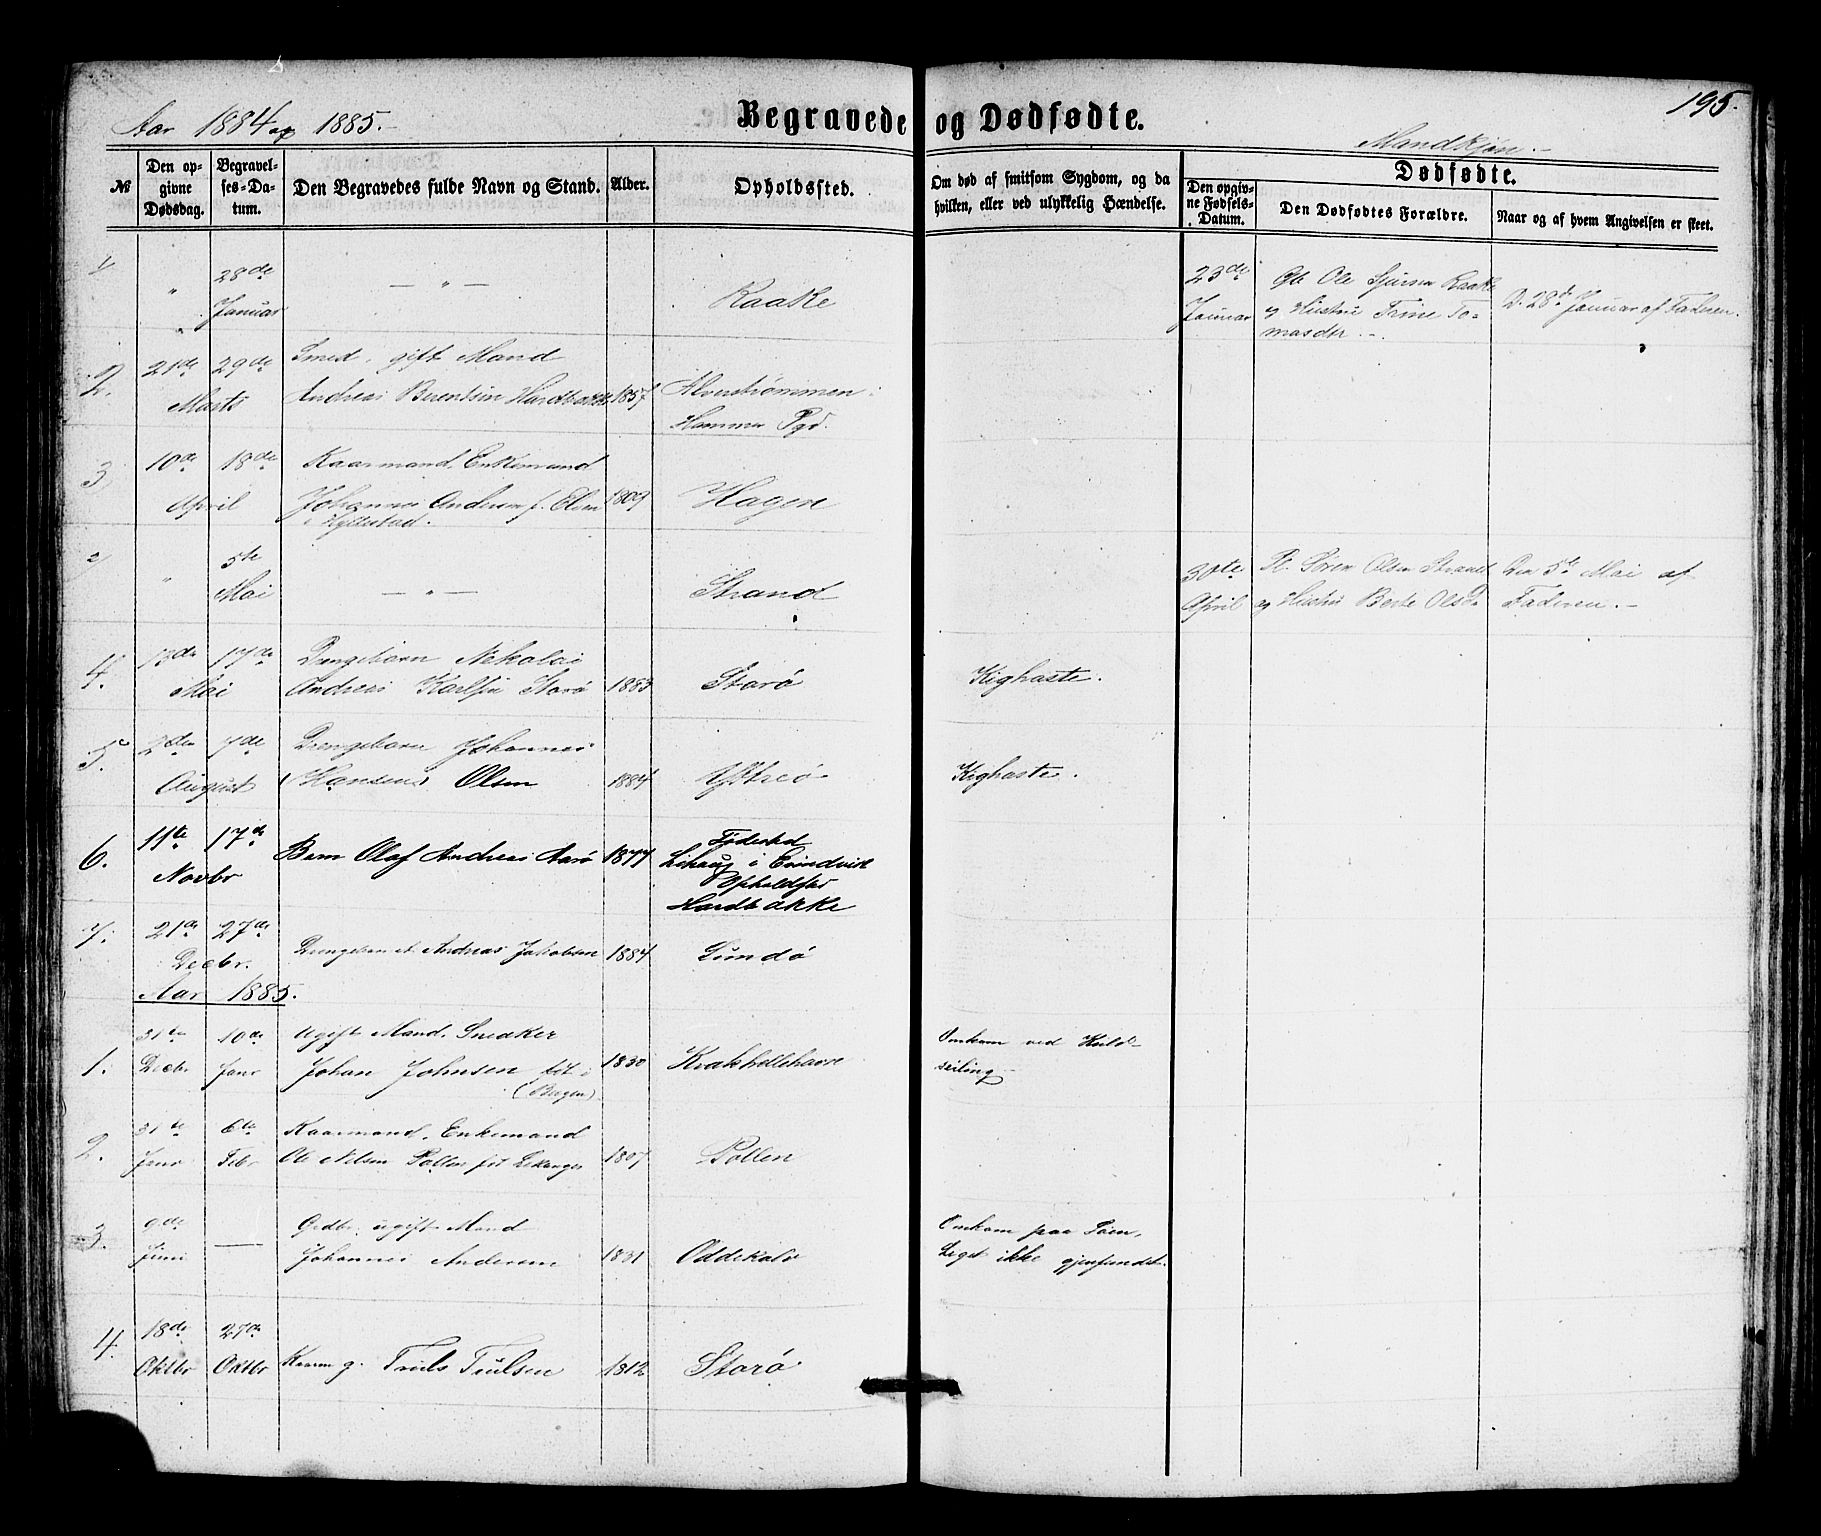 Aar 1884 og 1885.
Begravede og Dødfødte.
195.
Mandkjøn.
№
Den opgivne Dødsdag.
Begravelses-Datum.
Den Begravedes fulde Navn og Stand.
Alder.
Opholdssted.
Om død af smitsom Sygdom, og da hvilken, eller ved ulykkelig Hændelse.
Dødfødte.
Den opgivne Fødsels-Datum.
Den Dødfødtes Forældre.
Naar og af hvem Angivelsen er skeet.
1
" 28de Januar
— " —
Raake
23de Januar
Ole Sjursen Raake
og Hustru Trine To-
masdtr.
D. 28de Januar af Faderen.
2. 21de 29de Marts
Smed, gift Mand
Andreas Berentsen Hardbakke 1857
Alverstrømmen
Hammer Pgd.
3 10de 18de April
Kaarmand, Enkemand
Johannes Andersen f. 1809
i Hyllestad.
Hagen
2
" 5te Mai
— " —
Strand
30te April
Pl. Søren Olsen Strand
og Hustru Berte Olsd.
Den 5te Mai af
Faderen.
4. 13de 17de Mai
Drengebarn Nikolai
Andreas Karlsen Storø 1883
Storø
Kighoste.
5. 2den 7de August
Drengebarn Johannes
(Hansen) Olsen 1884
Ytreø
Kighoste.
6. 11te 17de Novbr
Barn Olaf Andreas Aarø 1877
Fødested
i Evindvik
Opholdsted
Hardbakke
7. 21de 27de Decbr.
Drengebarn Andreas Jakobsen 1884
Lundø
Aar 1885.
1. 31te Decbr 10de Janr
Ugift Mand, Snedker
Johan Johnsen 1830
(Bergen)
Krakhellehavn
Omkom ved Kuld-
seiling
2. 31te Janr 6te Febr
Kaarmand, Enkemand
Ole Nilsen Pollen 1807
Pollen
3. 9de Juni —
Grdbr. ugift Mand
Johannes Andersen 1831
Oddekalv
Omkom paa Søen,
Liget ikke gjenfundet.
4. 18de Oktbr 27de Oktbr
Kaarm g. Truls Trulsen 1812
Storø